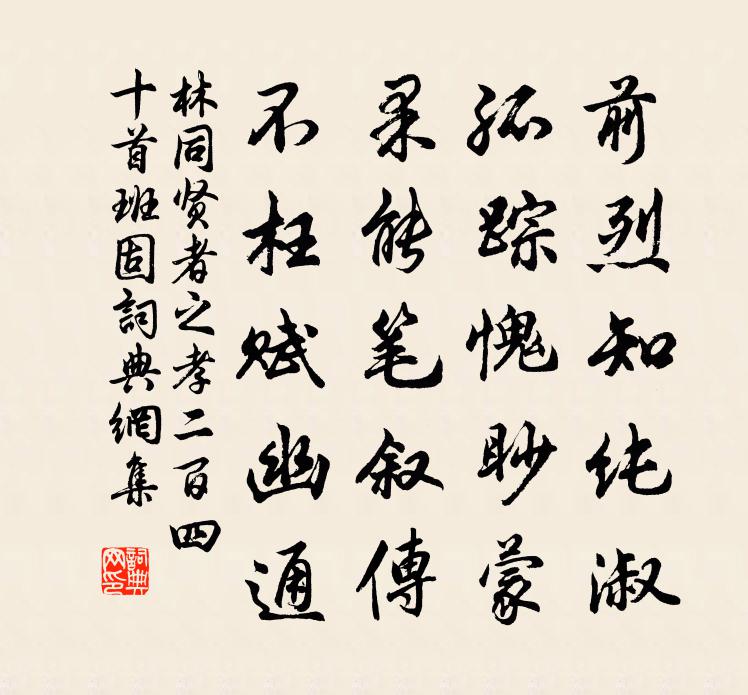 前烈知纯淑
孤踪愧眇蒙
果能笔叙傳
不枉赋幽通
林同贤者之孝二百四
十首班固詞典網集
詞典
网印